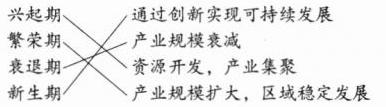 兴起期 通过创新实现可持续发展
繁荣期 产业规模衰减
衰退期 资源开发，产业集聚
新生期 产业规模扩大，区域稳定发展